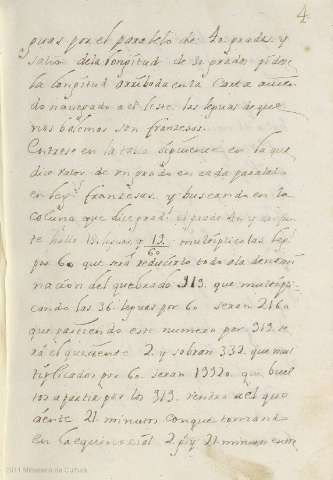 4
guas por el paralelo de 40 grados y
salio de la longitud de 30 grados pidese
la longitud arribado en la Carta avien
do navegado a el leste. las leguas de que
nos haremos son francesas.
Entrese en la tabla siguiente en la que
dice valor de un grado en cada paralelo
en leg.s francesas y buscando en la
coluna que dice grad.s el grado 40 y
te hallo 15 leguas y 19/60 multipliquelas
por 60 que será reducirlo todo a la denomi
nacion del quebrado 919. que multipli
cando las 36 leguas por 60 seran 2160
que partiendo este numero por 919. se
rá el quociente 2. y sobran 332. que mul
tiplicados por 60 seran 19920 que buel
tos a partir por los 919. vendra a el quo
ciente 21 minutos conque tomando
en la equinocial 2 g.s y 21 minutos entre
2011 Ministerio de Cultura